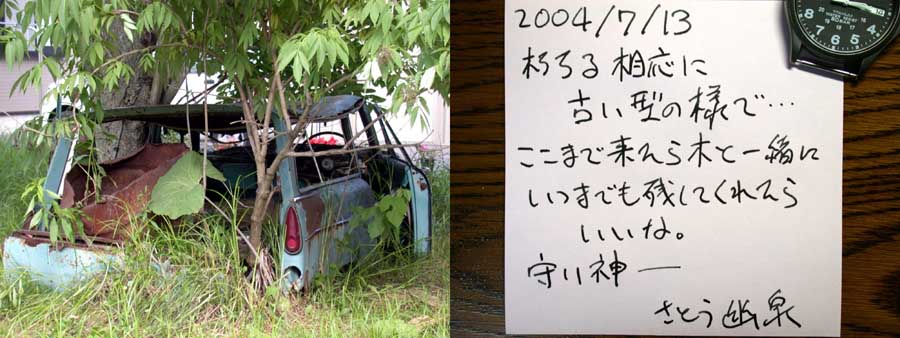 2004/7/13
朽ちる相応に
古い型の様で…
ここまで来たら木と一緒に
いつまでも残してくれたら
いいな。
守り神—
さとう幽泉